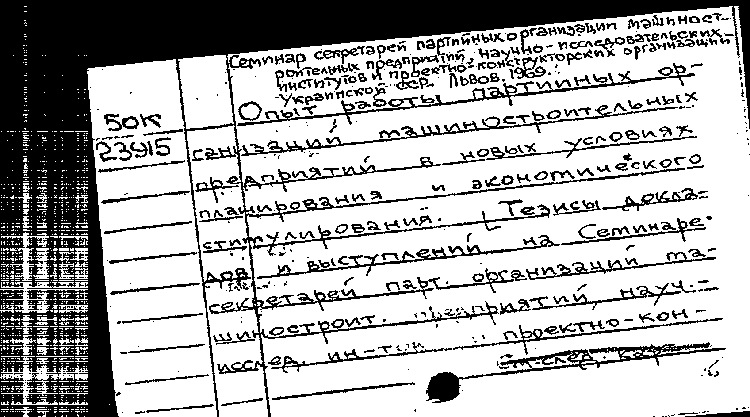 Семинар секретарей партийных организации машиност-
роительных предприятий, научно-исследовательских
институтов и проектно-конструкторских организаций
Украинской ССР. Львов. 1969.
50К
23915
Опыт работы партийных ор-
ганизаций машиностроительных
предприятий в новых условиях
планирования и экономического
стимулирования. [Тезисы докла-
дов и выступлений на Семинаре
секретарей парт. организаций ма-
шиностроит. предприятий, науч.-
исслед. ин-тов проектно-кон-
См. след. карт